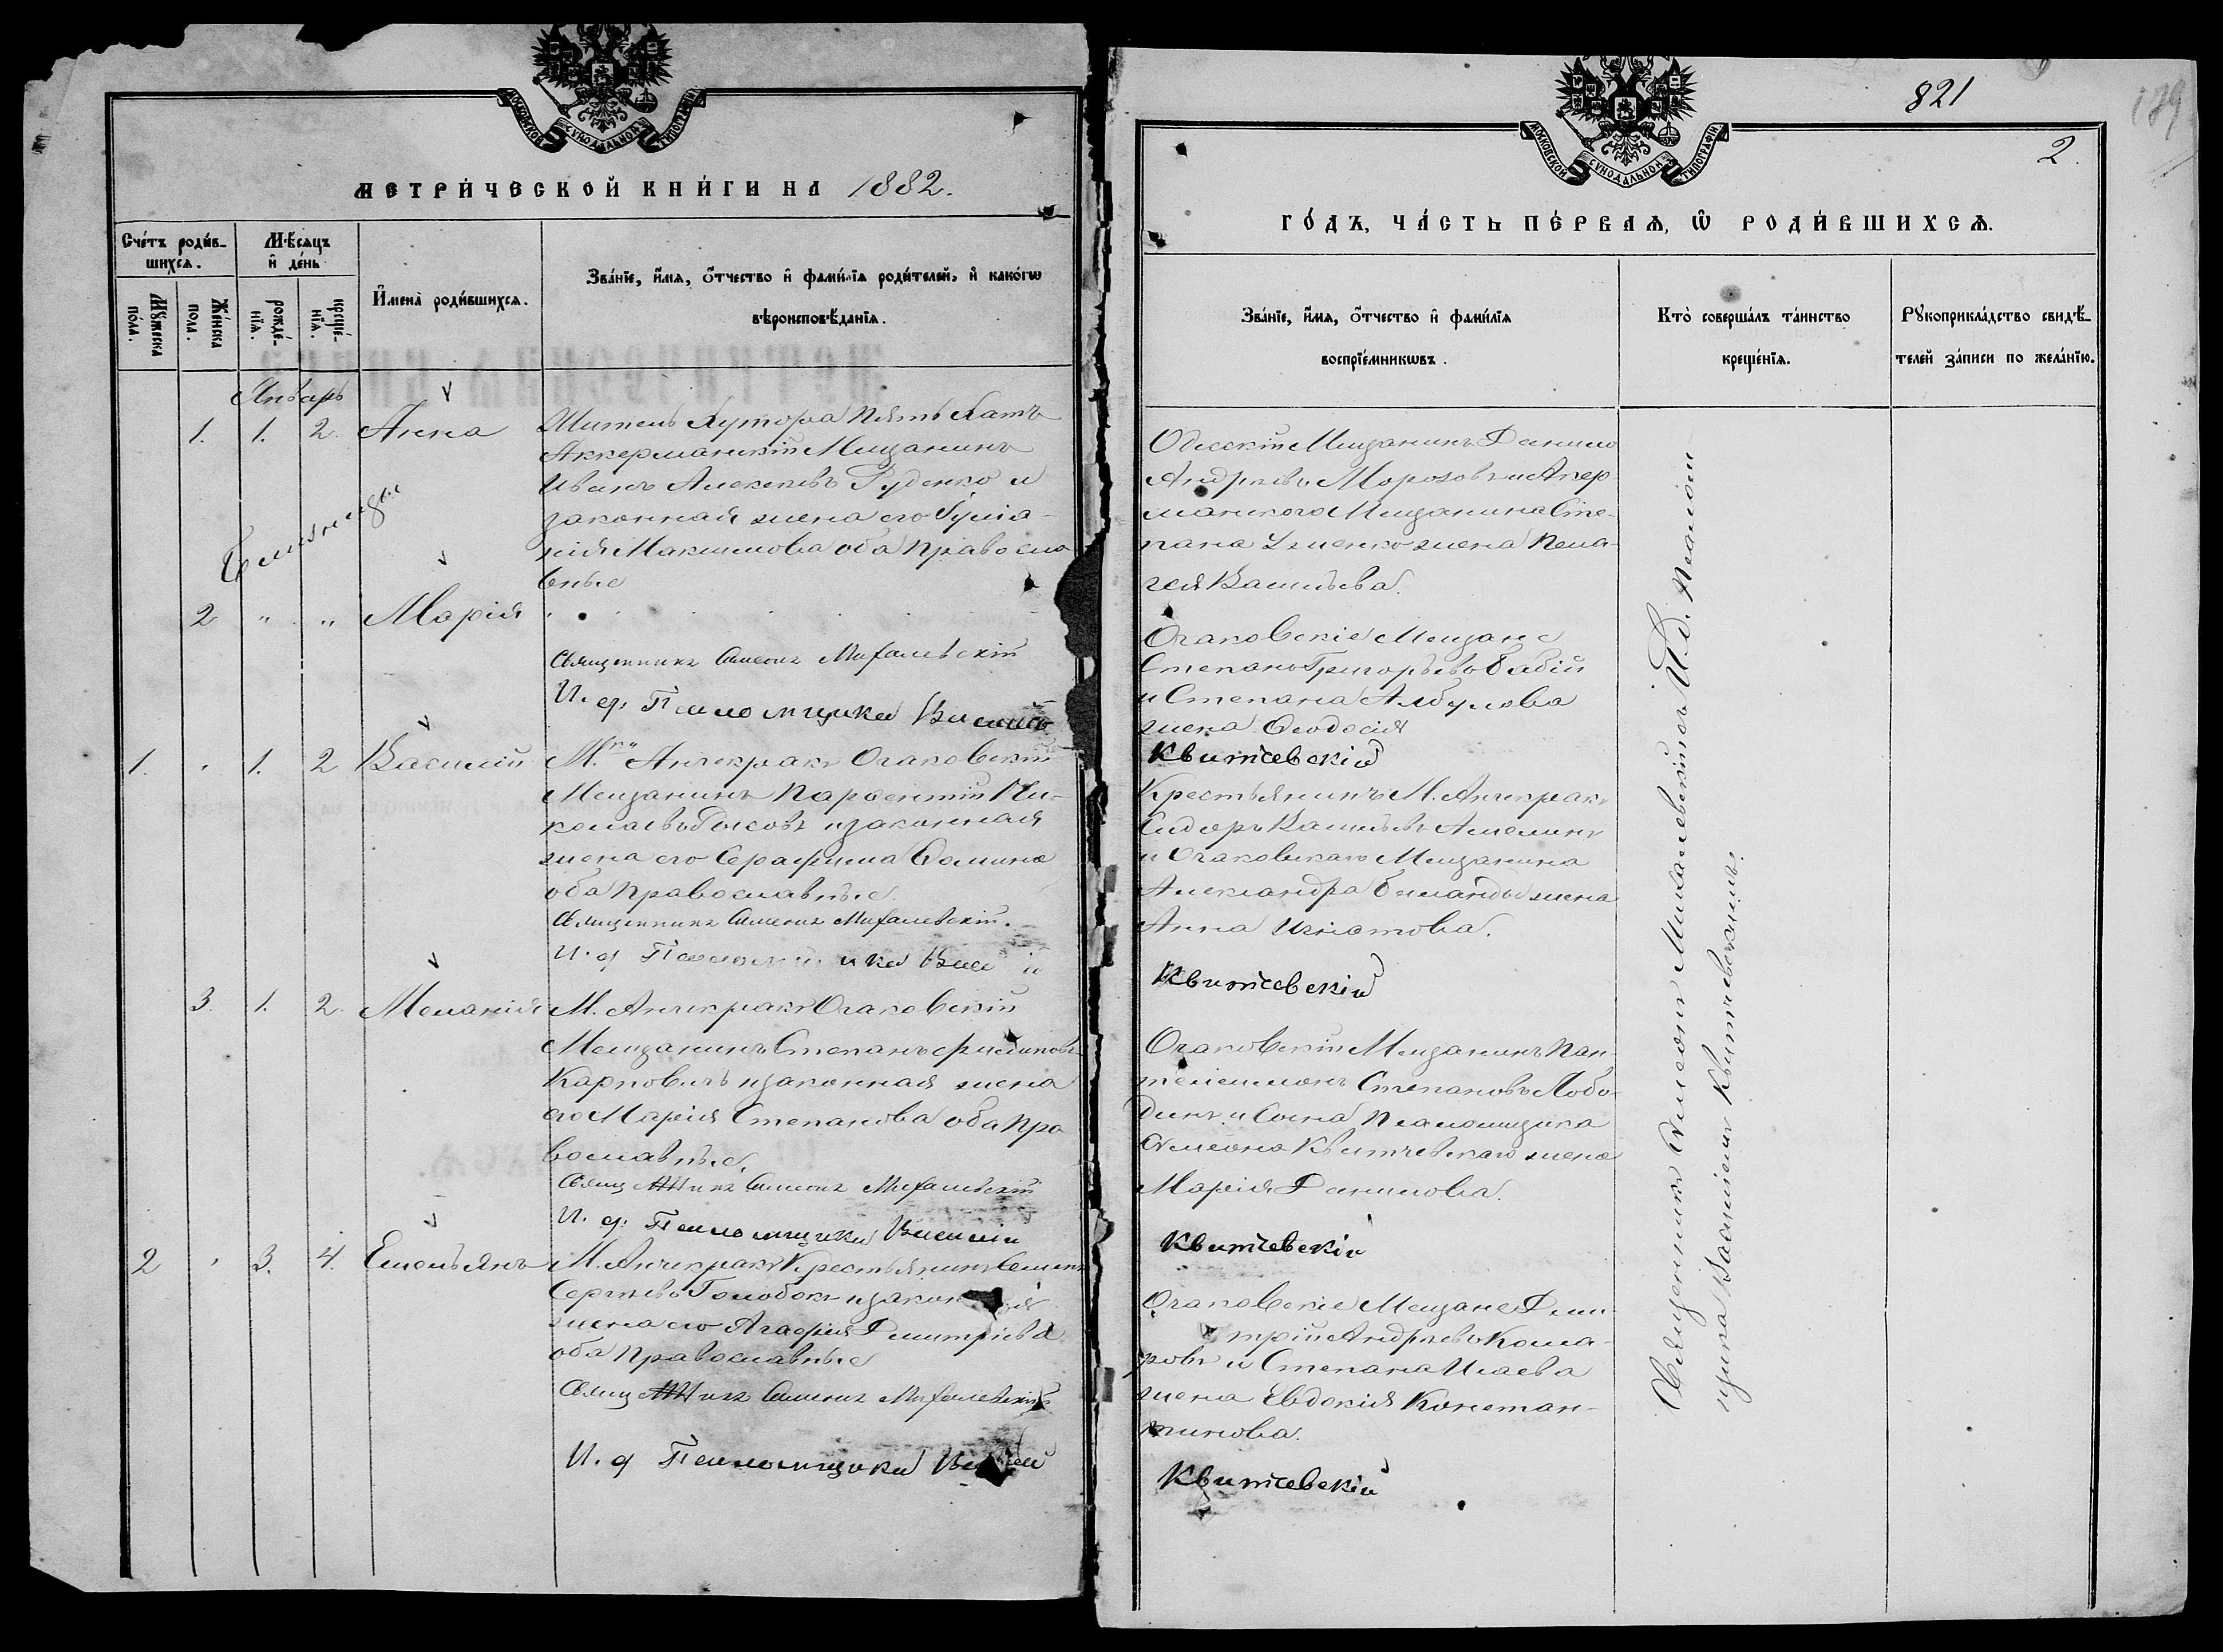 МОСКОВСКОЙ СѴНОДАЛЬНОЙ ТИПОГРАФІИ
МЕТРИ́ЧЕСКОЙ КНИ́ГИ НА 1882.
Сче́тъ роди́в-
шихсѧ.
Мѣ́сѧцъ
и҆ де́нь
И҆мена̀ роди́вшихсѧ.
Зва́нїе, и҆́мѧ, ѻ҆́тчество и҆ фами́лїѧ роди́телей, и҆ како́гѡ
вѣроисповѣ́данїѧ.
Мꙋ́жеска
по́ла.
Же́нска
пола.
рожде́-
нїѧ.
креще́-
нїѧ.
Январь
1. 1. 2. Анна
Житель Хутора Пять Хатъ
Аккерманскій Мещанинъ
Иванъ Алексѣевъ Руденко и
законная жена его
Максимова оба Правосла
вные
Близнецы
2 " " Марія
Священникъ Симеонъ Михалевскій
И. д. Псаломщика Василій
1. 1. 2 Василій
М. Анчекракъ Очаковскій
Мещанинъ Парѳентій Ни-
колаевъ и законная
жена его Серафима Ѳомина
оба Православные.
Священникъ Симеонъ Михалевскій.
И. д Псаломщика Василій
3. 1. 2. Меланія
М. Анчекракъ Очаковскій
Мещанинъ Степанъ Филиповъ
Карповичъ и законная жена
его Марія Степанова оба Пра
вославные.
Симеонъ Михалевскій
И. д. Псаломщика Василій
2 3. 4. Емельянъ
М. Анчекракъ Крестьянинъ Семенъ
Сергѣевъ Голобокъ и законная
жена его Агафія Дмитріева
оба Православные
Симеонъ Михалевскій
И. д Псаломщика Василій
821
2.
179
МОСКОВСКОЙ СѴНОДАЛЬНОЙ ТИПОГРАФІИ
ГО́ДЪ, ЧА́СТЬ ПЕ́РВАѦ, Ѡ҆ РОДИ́ВШИХСѦ.
Зва́нїе, и҆́мѧ, ѻ҆́тчество и҆ фами́лїѧ
воспрїе́мникѡвъ.
Кто̀ соверша́лъ та́инство
креще́нїѧ.
Рꙋкоприкла́дство свидѣ́-
телей за́писи по жела́нїю.
Одесскій Мещанинъ Данило
Андреевъ Морозовъ и Акер
манского Мещанина Сте-
пана жена Пела-
гея Васильева.
Очаковскіе Мещане
Степанъ Григорьевъ Бабій
и Степана Албулова
жена Ѳеодосія
Квитчевскій
Крестьянинъ М. Анчекракъ
Сидоръ Васильевъ Амелинъ
и Очаковскаго Мещанина
Александра жена
Анна Игнатова.
Квитчевскій
Очаковскій Мещанинъ Пан-
телеимонъ Степановъ Лобо-
динъ и Сына Псаломщика
Симеона Квитчевскаго жена
Марія Данилова.
Квитчевскій
Очаковскіе Мещане Дми-
трій Андреевъ Кома-
ровъ и Степана Исаева
жена Евдокія Констан-
тинова.
Квитчевскій
Священникъ Симеонъ Михалевскій съ И. д. Псалом
щика Василіемъ Квитчевскимъ.